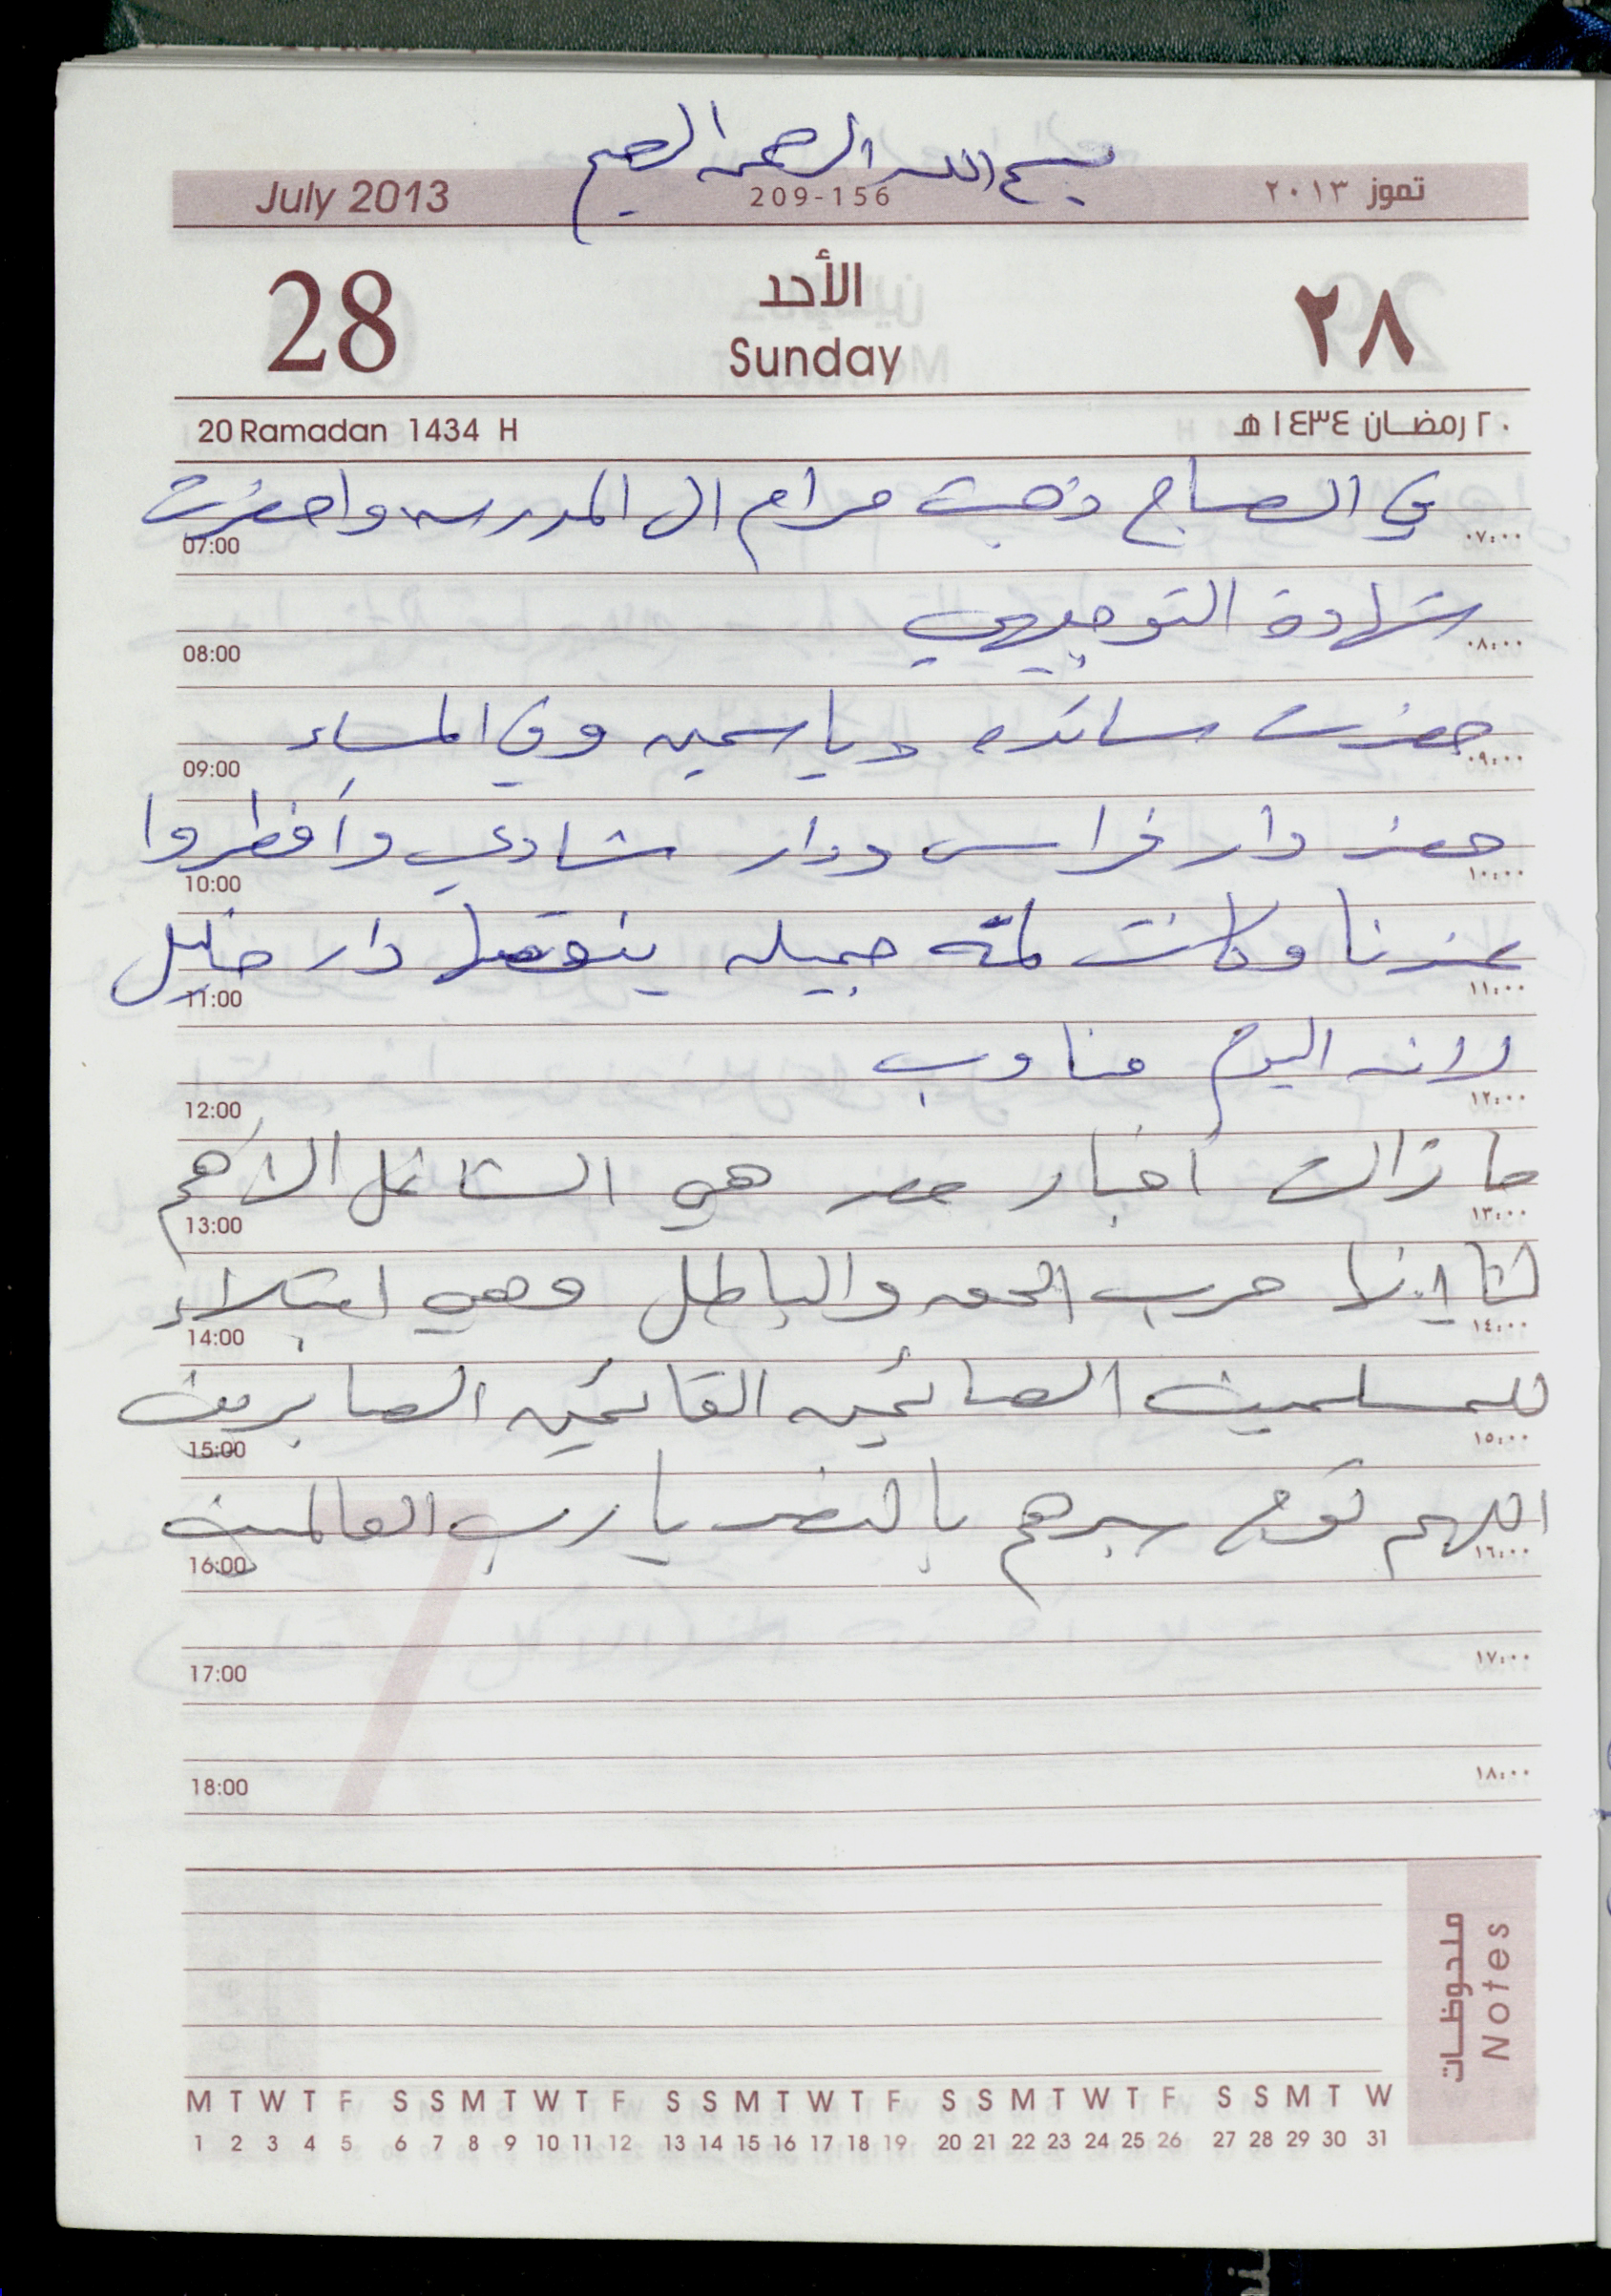 بسم الله الرحمن الرحيم
July 2013 209-156 تموز ٢٠١٣
28 الأحد ٢٨
Sunday
20 Ramadan 1434 H ٢٠ رمضان ١٤٣٤ هـ
في الصباح ذهبت مرام الى المدرسه واحضرت
07:00 ٠٧:٠٠
شهادة التوجيهي
08:00 ٠٨:٠٠
حضرت سائده وياسمين وفي المساء
09:00 ٠٩:٠٠
حضر دار فراس ودار شادي وأفطروا
10:00 ١٠:٠٠
عندنا وكانت لمّه جميله ينقصها دار خليل
11:00 ١١:٠٠
لانه اليوم مناوب
12:00 ١٢:٠٠
ما زالت أخبار مصر هي الشاغل الأهم
13:00 ١٣:٠٠
لنا انها حرب الحق والباطل وهي ابتلاء
14:00 ١٤:٠٠
للمسلمين الصائمين القائمين الصابرين
15:00 ١٥:٠٠
اللهم توج صبرهم بالنصر يا رب العالمين
16:00 ١٦:٠٠
17:00 ١٧:٠٠
18:00 ١٨:٠٠
ملحوظات
Notes
M T W T F S S M T W T F S S M T W T F S S M T W T F S S M T W
1 2 3 4 5 6 7 8 9 10 11 12 13 14 15 16 17 18 19 20 21 22 23 24 25 26 27 28 29 30 31